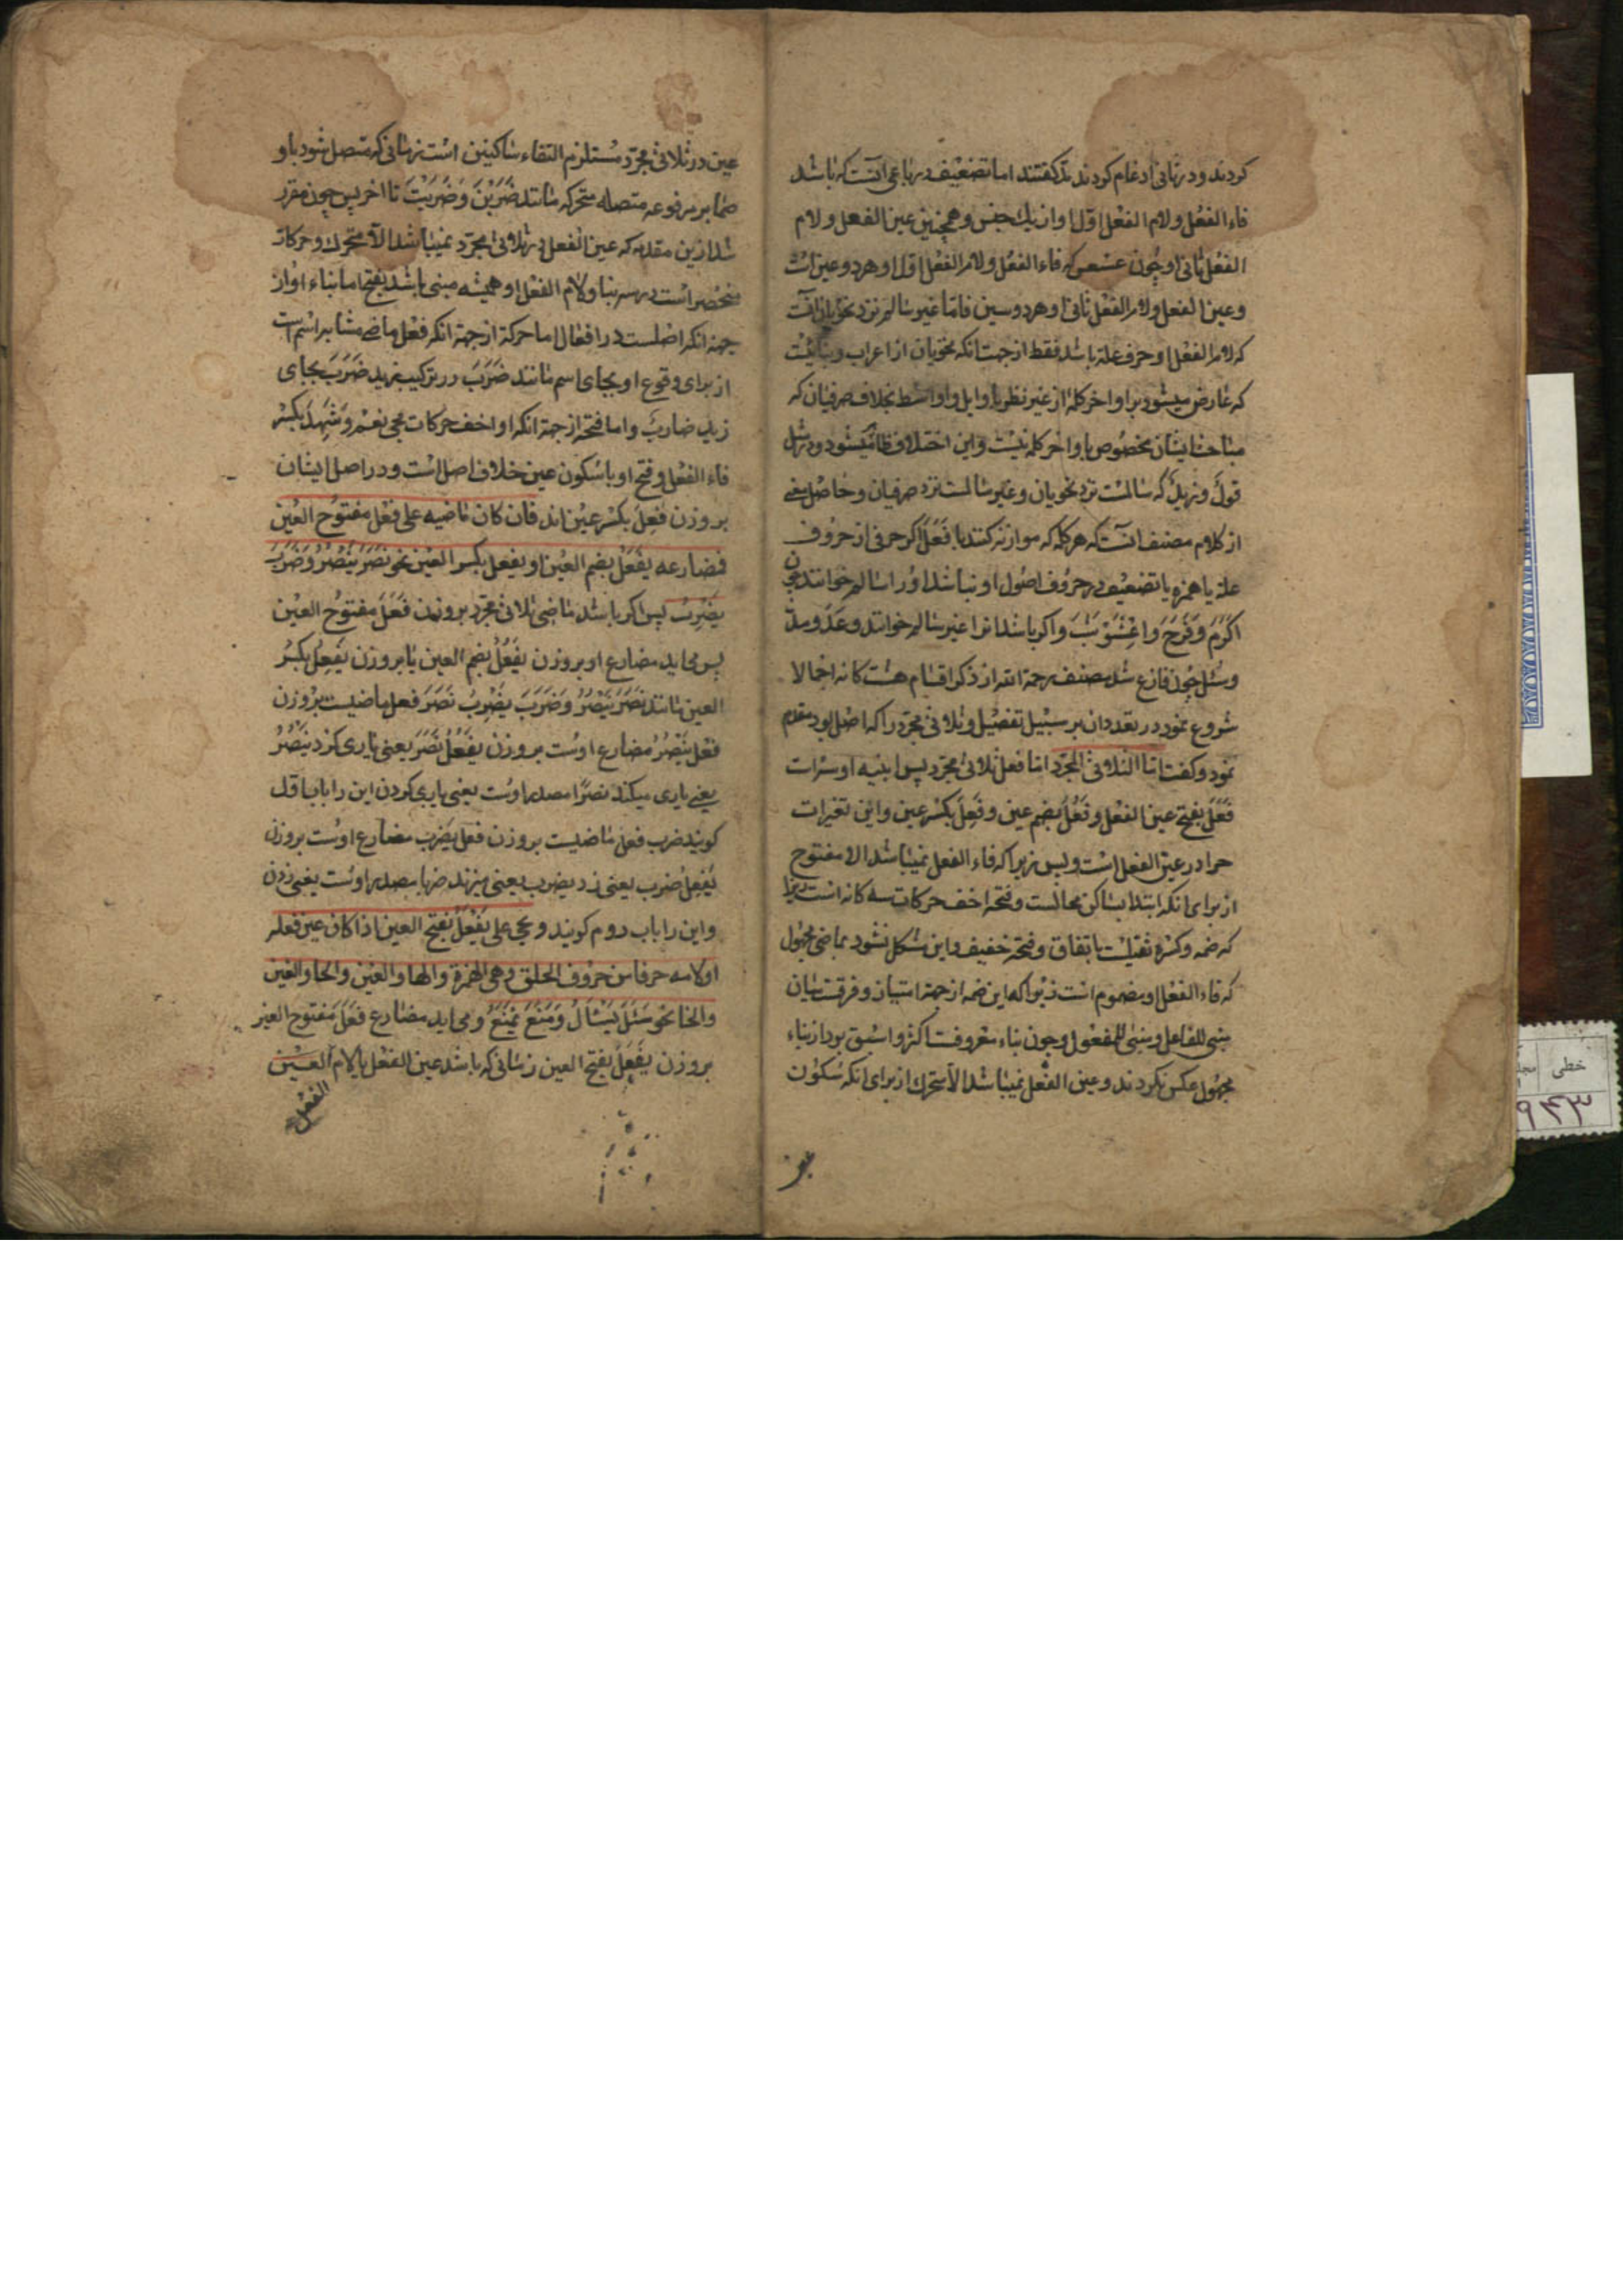 کردند و در ثانی ادغام کردند تذکفتند اما تضعیف در رباعی آنست که باشد
فاء الفعل و لام الفعل اول او از یک جنس و همچنین عین الفعل و لام
الفعل ثانی او چون عسعس که فاء الفعل و لام الفعل اول او هر دو عین است
و عین الفعل و لام الفعل ثانی او هر دو سین فاما غیر سالم نزد نحویان آنست
که لام الفعل او حرف علة باشد فقط از جهت انکه نحویان از اعراب و بنائیست
که عارض میشود بر اواخر کلمه از غیر نظر باوایل و اواسط بخلاف صرفیان که
مباحث ایشان مخصوص باواخر کلمه نیست و این اختلاف ظاهر میشود در مثل
قول و نزیل که سالمست نزد نحویان و غیر سالمست نزد صرفیان و حاصل معنی
از کلام مصنف آنست که هر کلمه که موازنه کنند با فَعَلَ اکر حرفی از حروف
علة یا همزه یا تضعیف در حروف اصول او نباشد او را سالم خوانند چون
اَکرَمَ وَ فَرَّحَ وَ اعْشَوْشَبَ و اکر باشد انرا غیر سالم خوانند و عَدَ و مدّ
و سئل چون فارغ شد مصنف رحمة الله از ذکر اقسام هشت کانه اجمالا
شروع نمود در تعداد ان بر سبیل تفصیل و ثلاثی مجرد را که اصل بود مقدم
نمود و کفت اما الثلاثی المجرد اما فعل ثلاثی مجرد پس ابنیه او سه است
فَعَلَ بفتح عین الفعل و فَعُلَ بضم عین و فَعِلَ بکسر عین و این تغیرات
جرا در عین الفعل است و بس زیرا که فاء الفعل نمیباشد الا مفتوح
از برای انکه ابتدا بساکن محالست و فتحه اخف حرکات سه کانه است زیرا
که ضمه و کسره ثقیلست باتفاق و فتحه خفیف و این مشکل نشود بماضی مجهول
که فاء الفعل او مضموم است زیرا که این ضمه از جهة امتیاز و فرقست میان
مبنی للفاعل و مبنی للمفعول و چون بناء معروف اکثر و اسبق بود از بناء
مجهول عکس نکردند و عین الفعل نمیباشد الا متحرک از برای انکه سکون
عین در ثلاثی مجرد مستلزم التقاء ساکنین است زمانی که متصل شود باو
ضمایر مرفوعه متصله متحرکه مانند ضَرَبْنَ وَ ضَرَبْتَ تا اخر پس چون مقرر
شد ازین مقدمه که عین الفعل در ثلاثی مجرد نمیباشد الا متحرک و حرکات
منحصر است در سه بنا و لام الفعل او همیشه مبنی باشد بفتح اما بناء او از
جهة انکه اصلست در افعال اما حرکة از جهة انکه فعل ماضی مشابه اسم است
از برای وقوع او بجای اسم مانند ضَرَبَ در ترکیب زید ضَرَبَ بجای
زید ضاربٌ و اما فتحه از جهة انکه او اخف حرکات مجی نعم و شهد بکسر
فاء الفعل و فتح او باسکون عین خلاف اصل است و در اصل ایشان
بر وزن فَعِلَ بکسر عین اند فان کان ماضیه علی فعل مفتوح العین
فمضارعه یفعُل بضم العین او یفعِل بکسر العین نحو نَصَرَ یَنْصُرُ وَ ضَرَبَ
یَضْرِبُ پس اکر باشد ماضی ثلاثی مجرد بر وزن فَعَلَ مفتوح العین
پس می اید مضارع او بر وزن یَفْعُلُ بضم العین یا بر وزن یَفْعِلُ بکسر
العین مانند نَصَرَ یَنْصُرُ وَ ضَرَبَ یَضْرِبُ نَصَرَ فعل ماضیست بر وزن
فَعَلَ یَنْصُرُ مضارع اوست بر وزن یَفْعُلُ نَصَرَ یعنی یاری کرد یَنْصُرُ
یعنی یاری میکند نصرًا مصدر اوست یعنی یاری کردن این را باب اول
کویند ضرب فعل ماضیست بر وزن فعل یضرب مضارع اوست بر وزن
یَفْعِلُ ضرب یعنی زد یضرب یعنی میزند ضربا مصدر اوست یعنی زدن
و این را باب دوم کویند و یجی علی یَفْعَلُ بفتح العین اذا کان عین فعله
او لامه حرفا من حروف الحلق و هی الهمزة و الها و العین و الحا و الغین
و الخا نحو سَئَلَ یَسْئَالُ وَ مَنَعَ یَمْنَعُ و می اید مضارع فَعَلَ مفتوح العین
بر وزن یَفْعَلُ بفتح العین زمانی که باشد عین الفعل یا لام العین
الفعل
خطی
۹۴۳